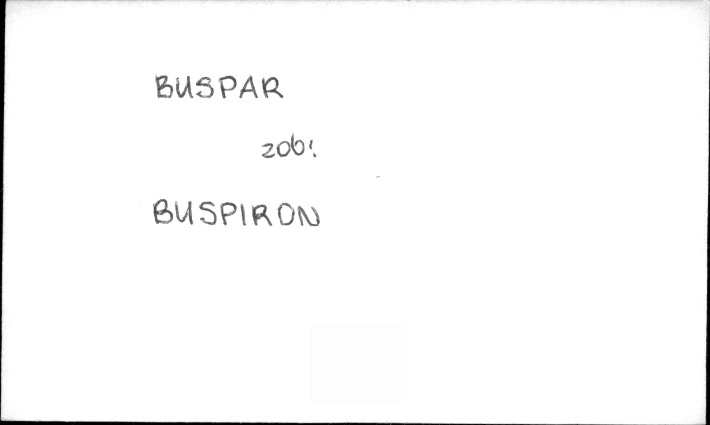 BUSPAR
zob:
BUSPIRON